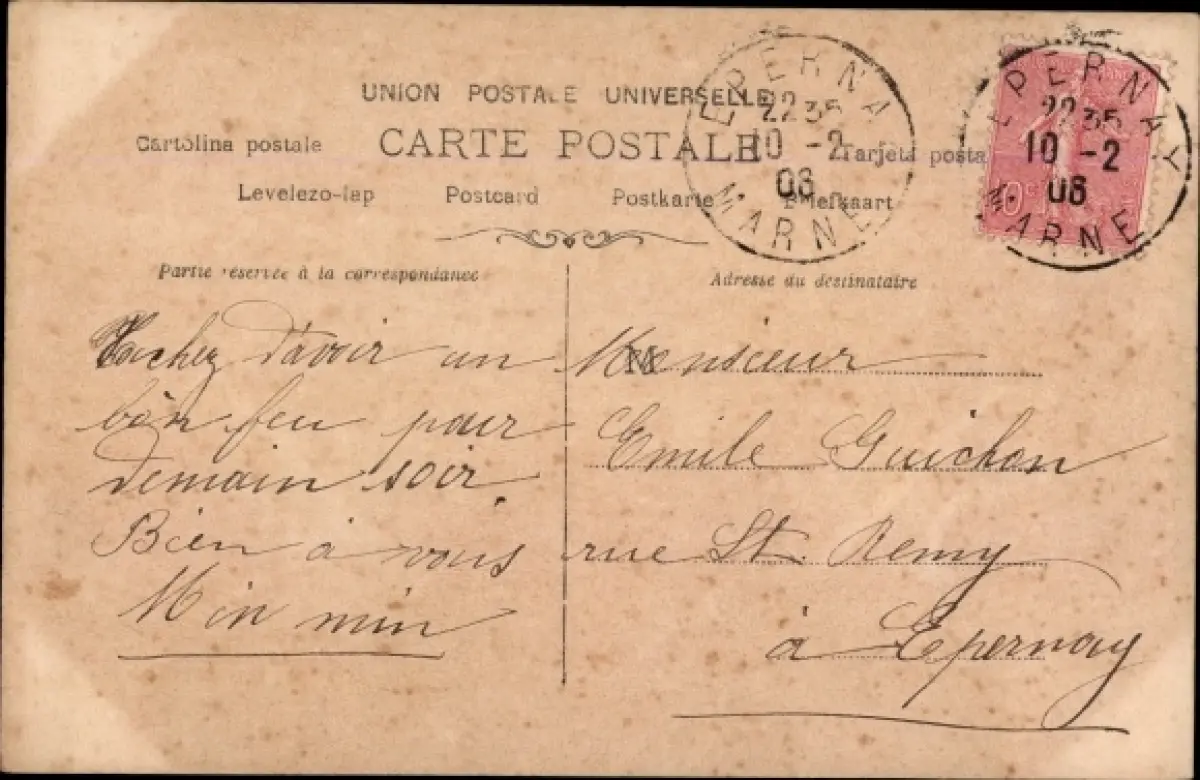 UNION POSTALE UNIVERSELLE
Cartolina postale CARTE POSTALE Tarjeta postal
Levelezo-lap Postcard Postkarte Briefkaart
EPERNAY
22 35
10 -2
06
MARNE
EPERNAY
22 35
10 -2
06
MARNE
10 c
Partie réservée à la correspondance
Tachez d'avoir un
bon feu pour
demain soir
Bien à vous
Min min
Adresse du destinataire
Monsieur
Emile Guichon
rue St. Remy
à Epernay